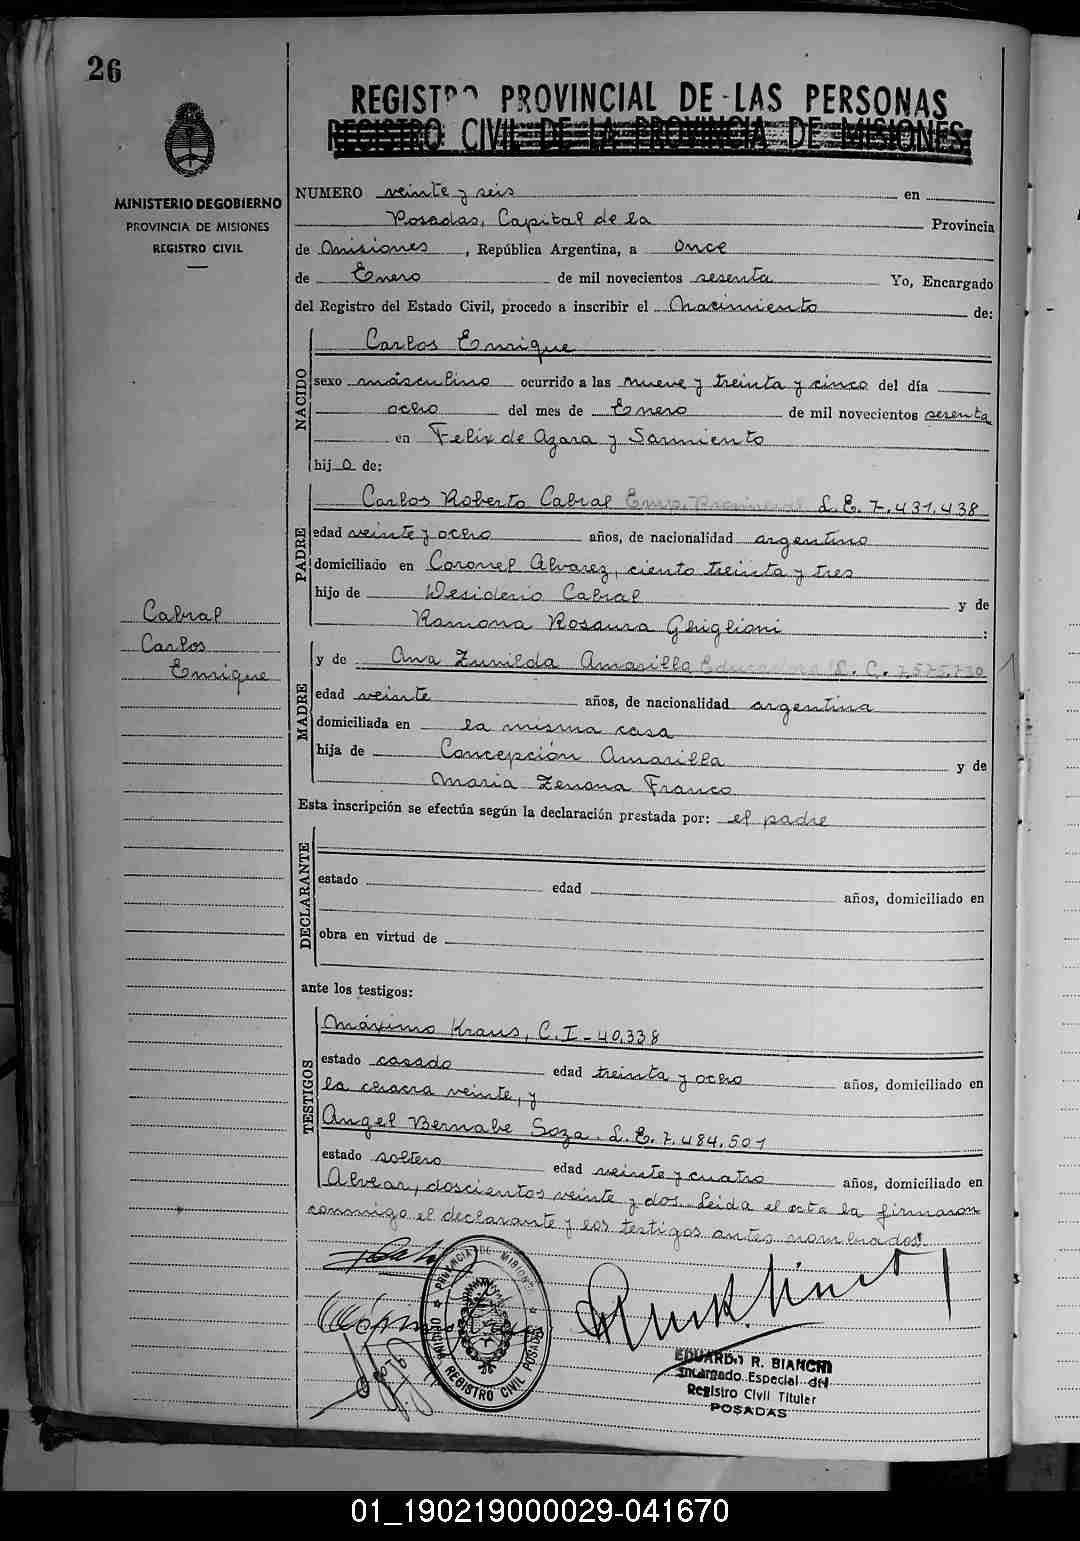 26
REGISTRO PROVINCIAL DE LAS PERSONAS
REGISTRO CIVIL DE LA PROVINCIA DE MISIONES
MINISTERIO DE GOBIERNO
PROVINCIA DE MISIONES
REGISTRO CIVIL
NUMERO veinte y seis en
Posadas, Capital de la Provincia
de Misiones, República Argentina, a Once
de Enero de mil novecientos sesenta Yo, Encargado
del Registro del Estado Civil, procedo a inscribir el Nacimiento de:
NACIDO
Carlos Enrique
sexo másculino ocurrido a las nueve y treinta y cinco del día
ocho del mes de Enero de mil novecientos sesenta
en Felix de Azara y Sarmiento
hijo de:
PADRE
Carlos Roberto Cabral Emp. Provincial L.E. 7.431.438
edad veinte y ocho años, de nacionalidad argentino
domiciliado en Coronel Alvarez, ciento treinta y tres
hijo de Desiderio Cabral y de
Ramona Rosaura Ghiglioni :
Cabral
Carlos
Enrique
MADRE
y de Ana Zunilda Amarilla Educadora L.C.
edad veinte años, de nacionalidad argentina
domiciliada en la misma casa
hija de Concepción Amarilla y de
Maria Zenona Franco
Esta inscripción se efectúa según la declaración prestada por: el padre
DECLARANTE
estado edad años, domiciliado en
obra en virtud de
ante los testigos:
TESTIGOS
Máximo Kraus, C.I-40.338
estado casado edad treinta y ocho años, domiciliado en
la chacra veinte, y
Angel Bernabe Soza. L.E. 7.484.501
estado soltero edad veinte y cuatro años, domiciliado en
Alvear, doscientos veinte y dos. Leida el acta la firmaron
conmigo el declarante y los testigos antes nombrados.
PROVINCIA DE MISIONES
REGISTRO CIVIL POSADAS
EDUARDO R. BIANCHI
Encargado Especial del
Registro Civil Titular
POSADAS
01_190219000029-041670